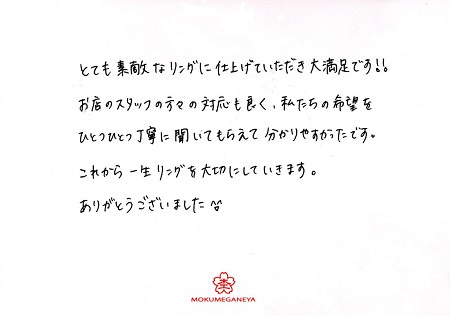 とても素敵なリングに仕上げていただき大満足です!!
お店のスタッフの方々の対応も良く、私たちの希望を
ひとつひとつ丁寧に聞いてもらえて分かりやすかったです。
これから一生リングを大切にしていきます。
ありがとうございました
MOKUMEGANEYA